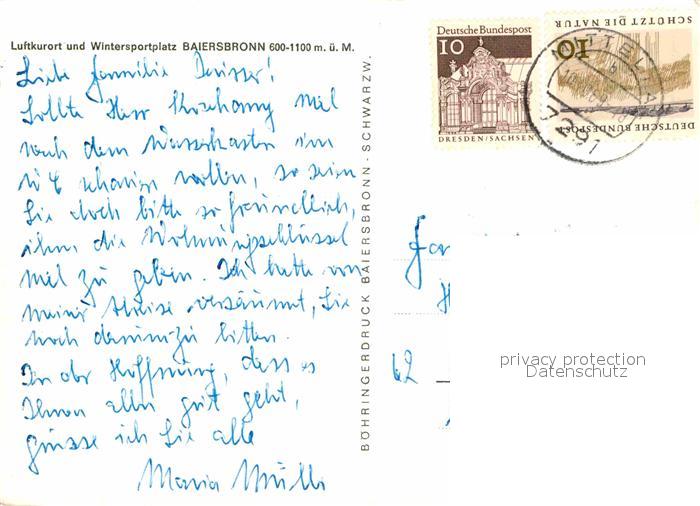 Luftkurort und Wintersportplatz BAIERSBRONN 600-1100 m. ü. M.
Liebe Familie
Sollte Herr mal
nach dem Wasserkasten im
WC schauen wollen, so seien
Sie doch bitte so freundlich,
ihm die Wohnungsschlüssel
mal zu geben. Ich hatte vor
meiner Abreise versäumt, Sie
noch darum zu bitten.
In der Hoffnung, dass es
Ihnen allen gut geht,
grüsse ich Sie alle
Maria
BÖHRINGERDRUCK BAIERSBRONN · SCHWARZW.
Deutsche Bundespost
10
DRESDEN/SACHSEN
SCHÜTZT DIE NATUR
10
DEUTSCHE BUNDESPOST
7291
Fam
62
privacy protection
Datenschutz